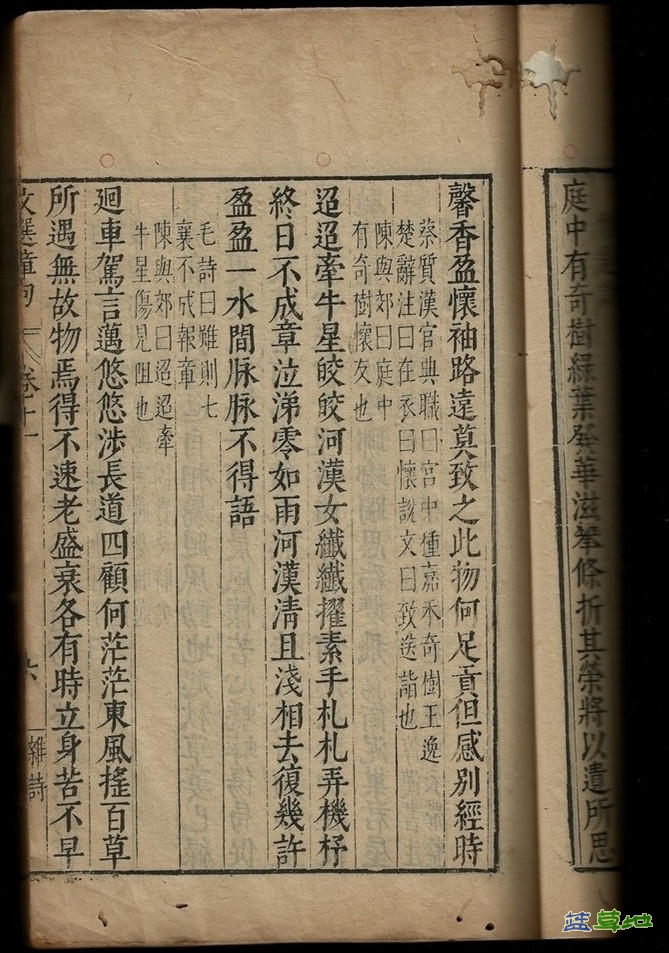 庭中有奇樹綠葉發華滋攀條折其榮將以遺所思
馨香盈懷袖路遠莫致之此物何足貢但感別經時
蔡質漢官典職曰宮中種嘉禾奇樹王逸
楚辭注曰在衣曰懷說文曰致送詣也
陳與郊曰庭中
有奇樹懷友也
迢迢牽牛星皎皎河漢女纖纖擢素手札札弄機杼
終日不成章泣涕零如雨河漢淸且淺相去復幾許
盈盈一水間脉脉不得語
毛詩曰雖則七
襄不成報章
陳與郊曰迢迢牽
牛星傷見阻也
廻車駕言邁悠悠涉長道四顧何茫茫東風搖百草
所遇無故物焉得不速老盛衰各有時立身苦不早
文選章句 卷十一 六 雜詩
蓝草地